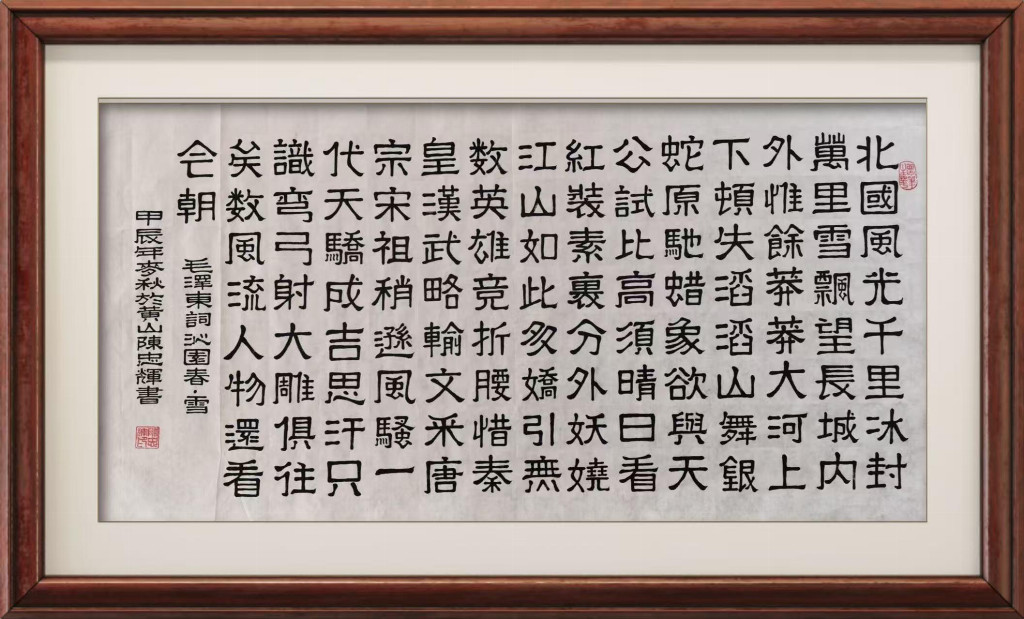 北國風光千里冰封
萬里雪飄望長城内
外惟餘莽莽大河上
下頓失滔滔山舞銀
蛇原馳蜡象欲與天
公試比高須晴日看
紅裝素裹分外妖嬈
江山如此多嬌引無
数英雄竞折腰惜秦
皇漢武略輸文采唐
宗宋祖稍遜風騷一
代天驕成吉思汗只
識弯弓射大雕俱往
矣数風流人物還看
今朝
毛澤東詞沁園春·雪
甲辰年麥秋於黄山陳忠輝書